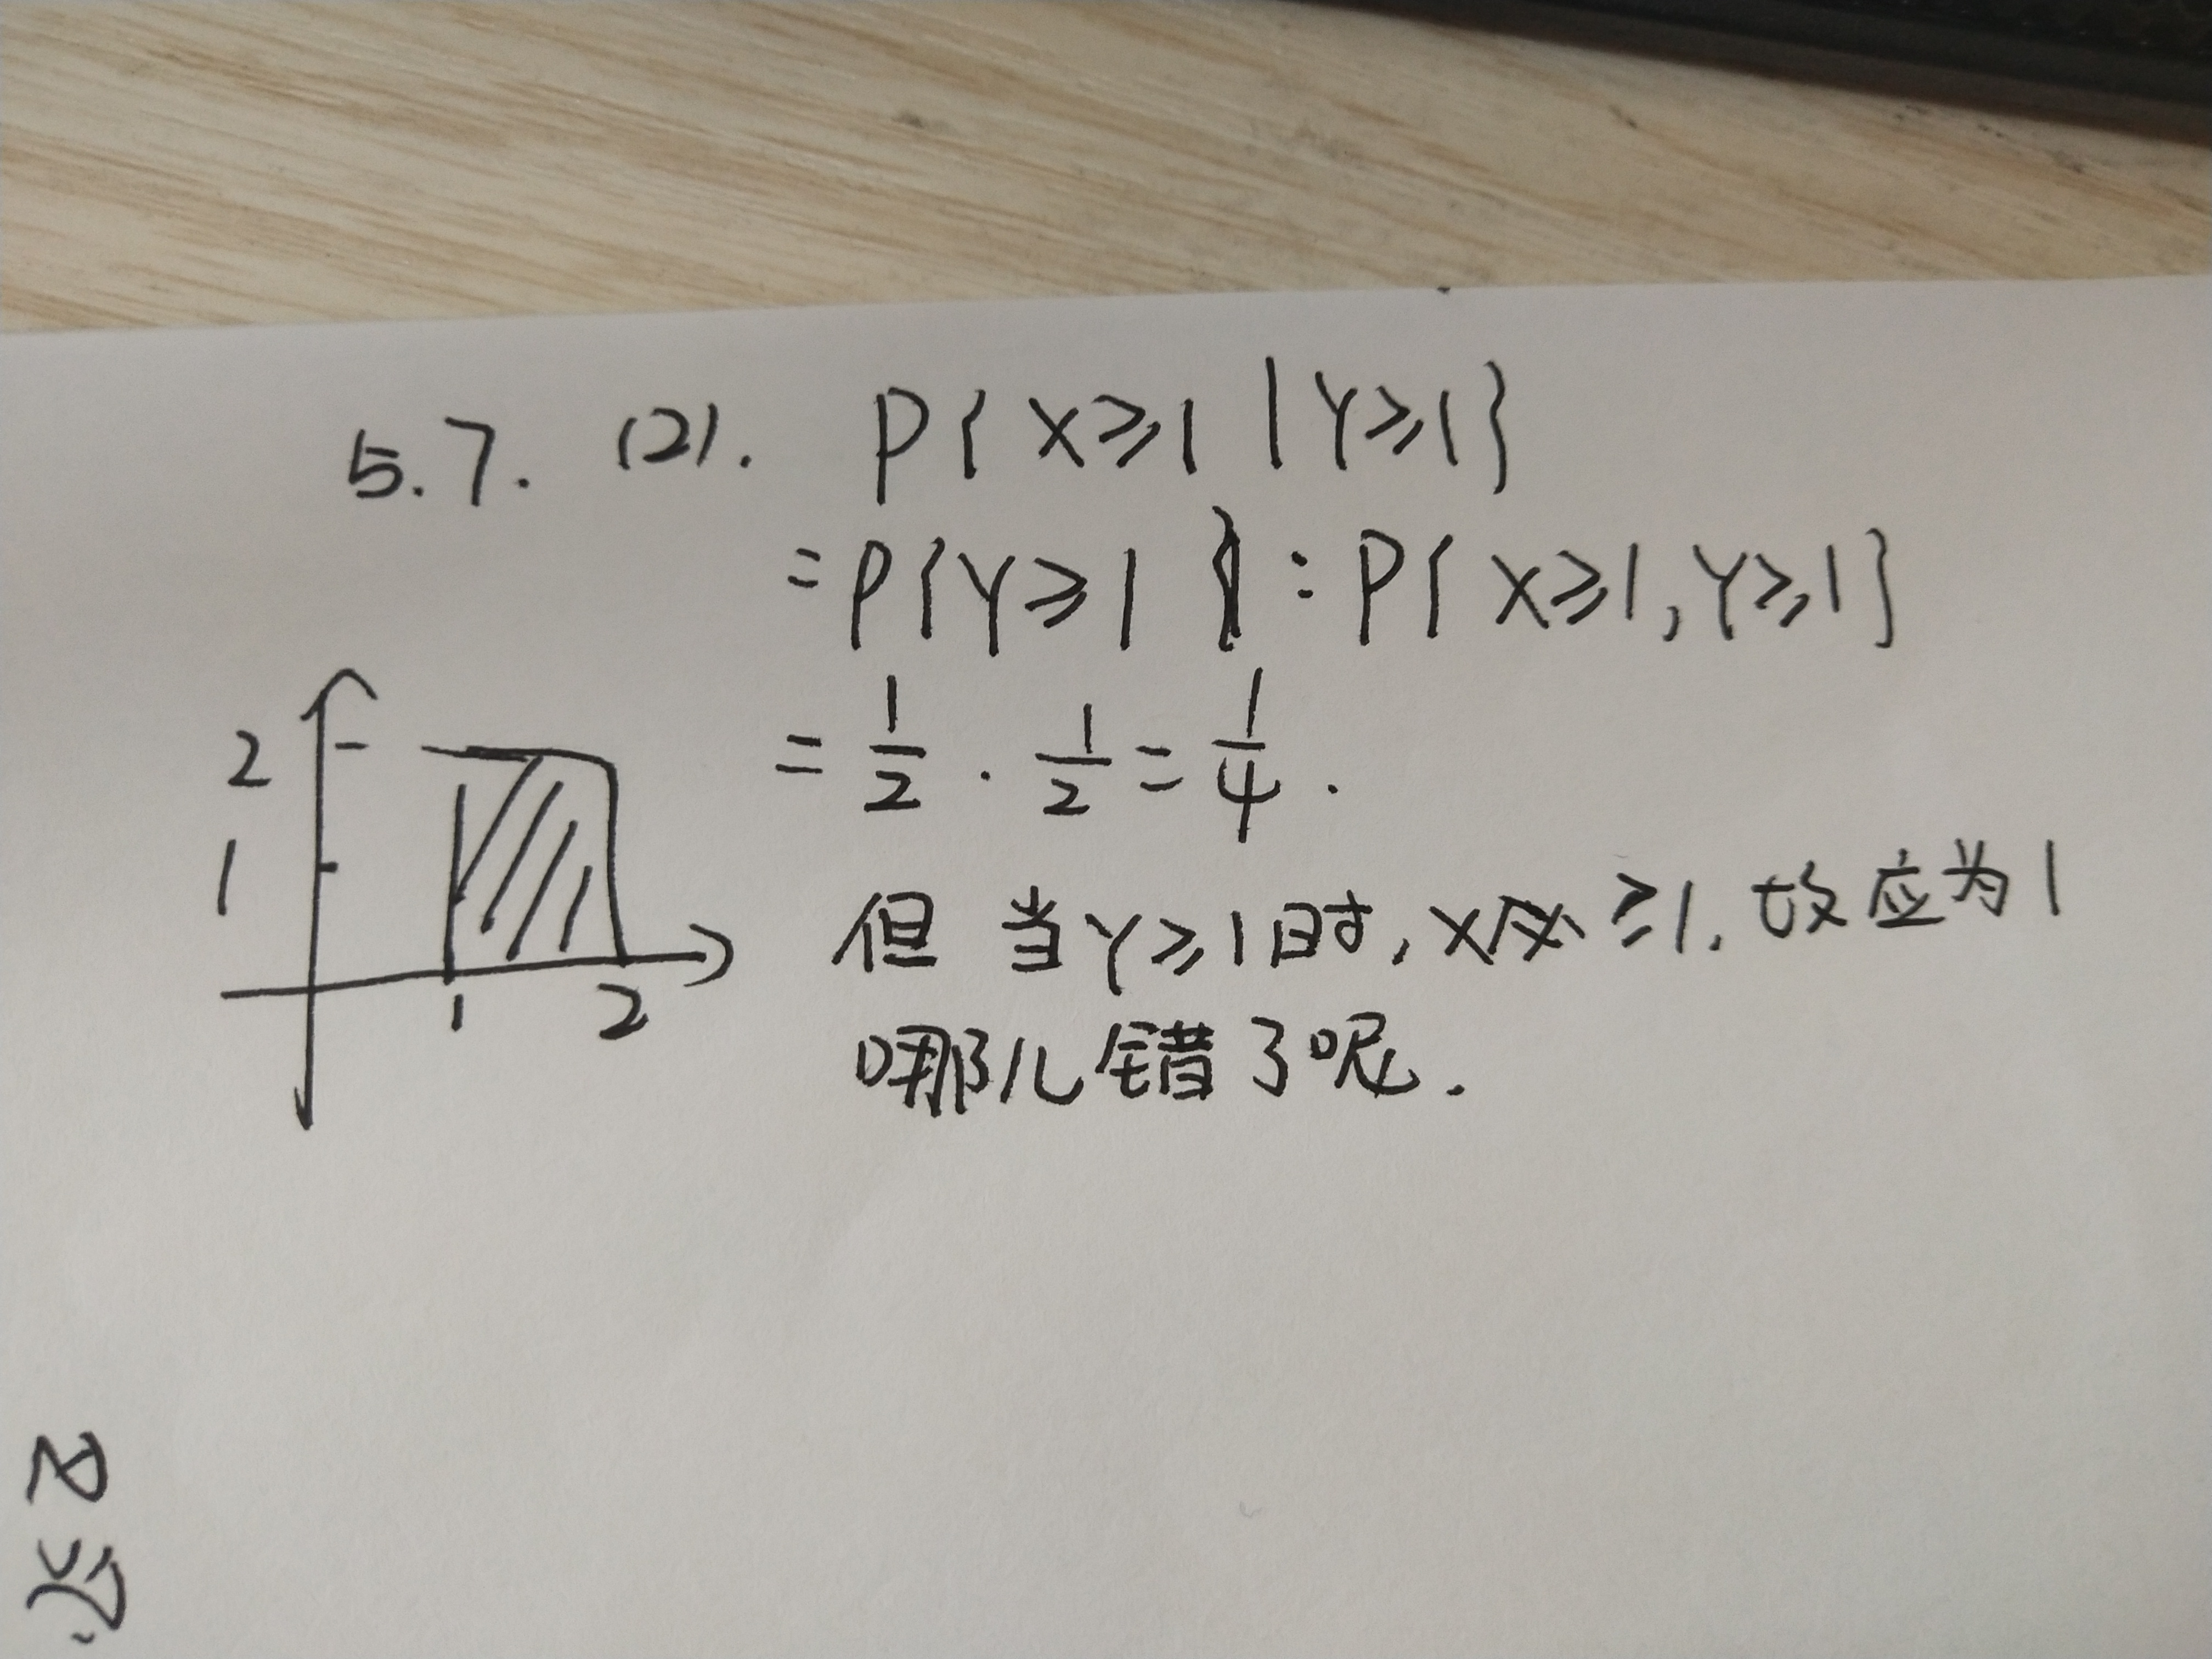 5.7. (2). P{X≥1|Y≥1}
=P{Y≥1}:P{X≥1,Y≥1}
=1/2·1/2=1/4.
2
1
1 2
但当Y≥1时,X≥1.故应为1
哪儿错了呢.